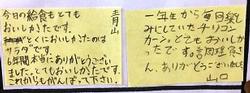 今日の給食もとても
おいしかったです。
とくにおいしかったのは
サラダです。
6年間本当にありがとうござい
ました。とてもおいしかったです。
これからもがんばって下さい。
青山
一年生から毎回楽し
みにしていたチリコン
カーン。とてもおいしか
ったです。調理員さ
ん、ありがとうございました。
山口